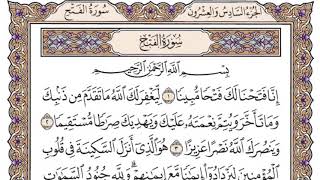 الجزء السادس والعشرون
سورة الفتح
سورة الفتح
بسم الله الرحمن الرحيم
إنا فتحنا لك فتحا مبينا ١ ليغفر لك الله ما تقدم من ذنبك
وما تأخر ويتم نعمته عليك ويهديك صراطا مستقيما ٢
وينصرك الله نصرا عزيزا ٣ هو الذي أنزل السكينة في قلوب
المؤمنين ليزدادوا إيمانا مع إيمانهم ولله جنود السموات